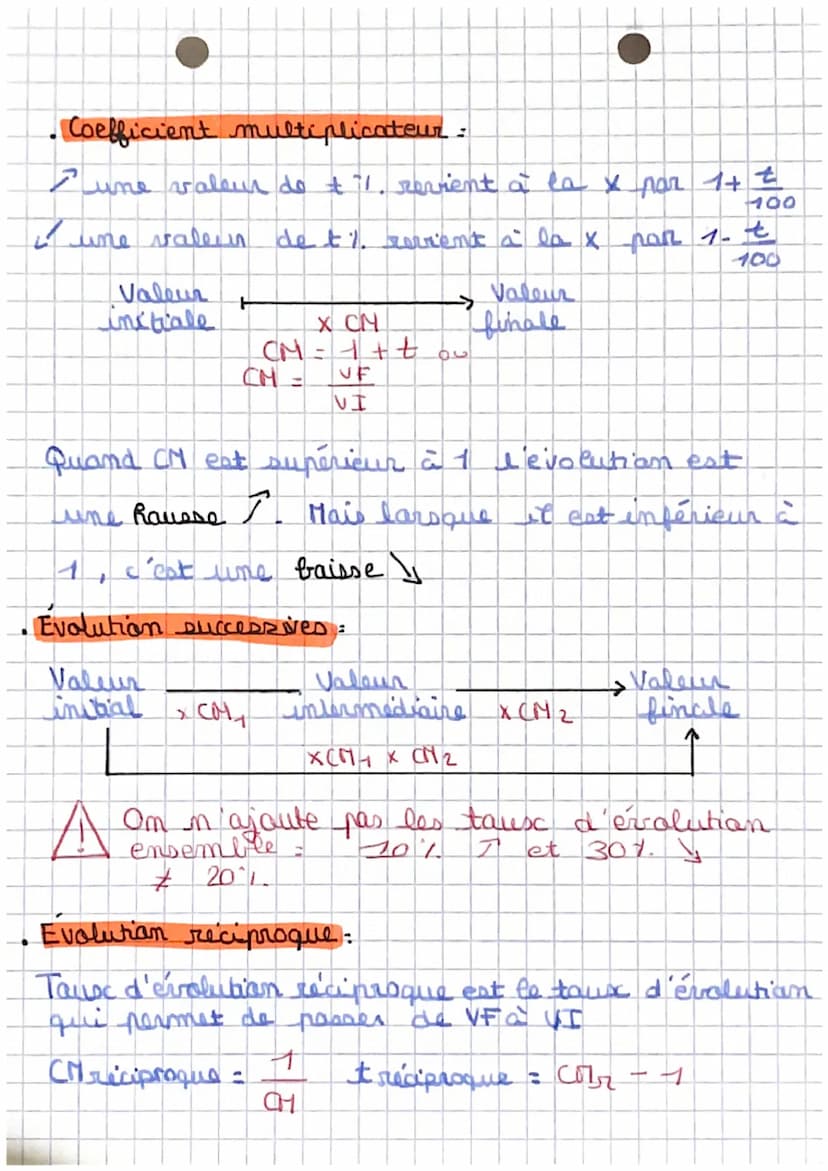 . Coefficient multiplicateur :
↗ une valeur de t %. revient à la x par 1+ t/100
↙ une valeur de t %. revient à la x par 1- t/100
Valeur initiale ⟼ Valeur finale
x CM
CM = 1 + t ou
CM = VF/VI
Quand CM est supérieur à 1 l'évolution est
une Hausse ↗. Mais lorsque il est inférieur à
1, c'est une baisse ↘
. Évolution successives :
Valeur initial x CM1 Valeur intermédiaire x CM2 → Valeur finale
x CM1 x CM2
⚠ On n'ajoute pas les taux d'évolution
ensemble : 10 % ↗ et 30 %. ↘
≠ 20 %.
. Évolution réciproque :
Taux d'évolution réciproque est le taux d'évolution
qui permet de passer de VF à VI
CM réciproque = 1/CM t réciproque = CMr - 1